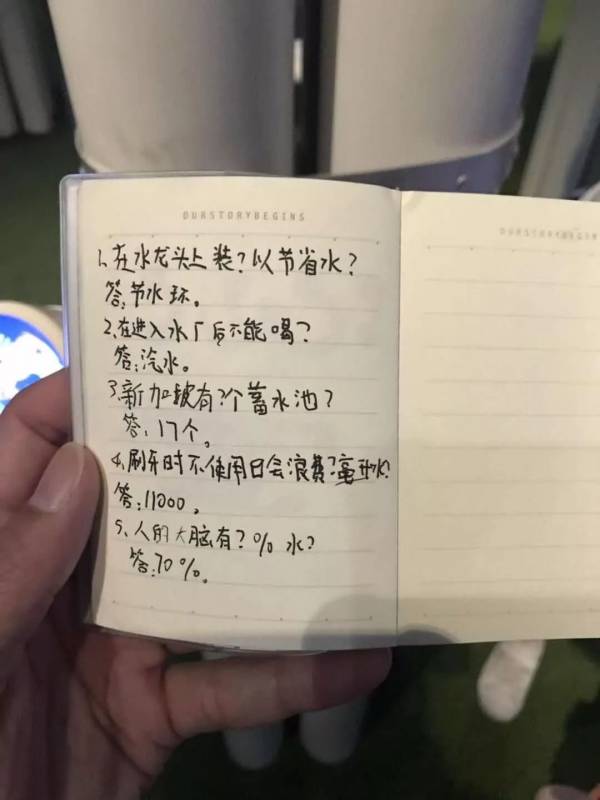 OURSTORYBEGINS
1、在水龙头上装?以节省水?
答:节水环。
2、在进入水厂后不能喝?
答:汽水。
3、新加坡有?个蓄水池?
答:17个。
4、刷牙时不使用日会浪费?毫升水?
答:11000。
5、人的大脑有?% 水?
答:70%。
OURSTORYBEGINS